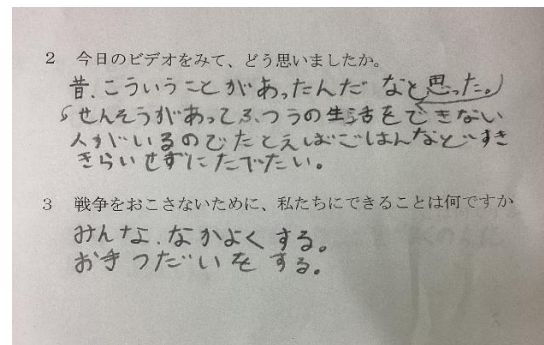 2 今日のビデオをみて、どう思いましたか。
昔、こういうことがあったんだなと思った。
せんそうがあってふつうの生活をできない
人がいるのでたとえばごはんなどすき
きらいせずにたべたい。
3 戦争をおこさないために、私たちにできることは何ですか
みんな、なかよくする。
お手つだいをする。